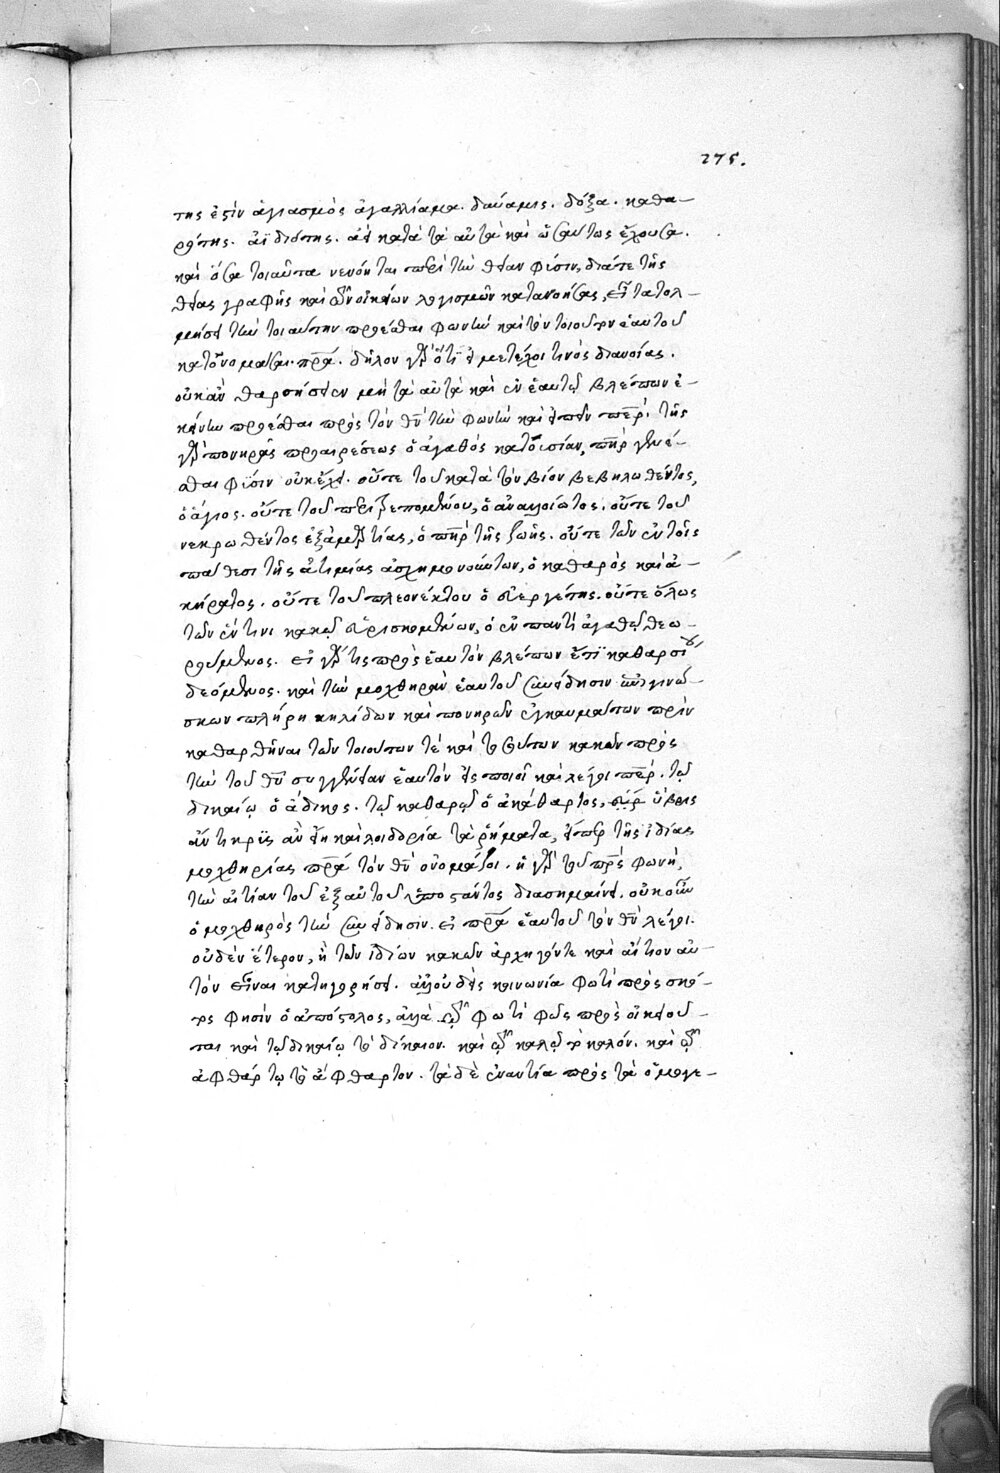 275.
της ἐστὶν ἁγιασμὸς ἀγαλλίαμα. δύναμις. δόξα. καθα-
ρότης. ἀϊδιότης. ἀεὶ κατὰ τὰ αὐτὰ καὶ ὡσαύτως ἔχουσα.
καὶ ὅσα τοιαῦτα νενόηται περὶ τὴν θείαν φύσιν, διά τε τῆς
θείας γραφῆς καὶ τῶν οἰκείων λογισμῶν κατανοήσας, εἶτα τολ-
μήσει τὴν τοιαύτην προέσθαι φωνὴν καὶ τὸν τοιοῦτον ἑαυτοῦ
κατονομάσαι πρα. δῆλον γὰρ ὅτι εἰ μετέχοι τινὸς διανοίας.
οὐκ ἂν θαρσήσειεν μὴ τὰ αὐτὰ καὶ ἐν ἑαυτῷ βλέπων ἐ-
κείνην προέσθαι πρὸς τὸν θν τὴν φωνὴν καὶ εἰπεῖν περ. τῆς
γὰρ πονηρᾶς προαιρέσεως ὁ ἀγαθὸς κατ' οὐσίαν, πηρ γενέ-
σθαι φύσιν οὐκ ἔχει. οὔτε τοῦ κατὰ τὸν βίον βεβηλωθέντος,
ὁ ἅγιος. οὔτε τοῦ περιτρεπομένου, ὁ ἀναλλοίωτος. οὔτε τοῦ
νεκρωθέντος ἐξ ἁμαρτίας, ὁ πηρ τῆς ζωῆς. οὔτε τῶν ἐν τοῖς
πάθεσι τῆς ἀτιμίας ἀσχημονούντων, ὁ καθαρὸς καὶ ἀ-
κήρατος. οὔτε τοῦ πλεονέκτου ὁ εὐεργέτης. οὔτε ὅλως
τῶν ἔν τινι κακῷ εὑρισκομένων, ὁ ἐν παντὶ ἀγαθῷ θεω-
ρούμενος. εἰ γάρ τις πρὸς ἑαυτὸν βλέπων ἔτι καθαρσίου
δεόμενος. καὶ τὴν μοχθηρὰν ἑαυτοῦ συνείδησιν ἐπιγινώ-
σκων πλήρη κηλίδων καὶ πονηρῶν ἐγκαυμάτων πρὶν
καθαρθῆναι τῶν τοιούτων τε καὶ τοσούτων κακῶν πρὸς
τὴν τοῦ θυ συγγένειαν ἑαυτὸν εἰς ποιοῖ καὶ λέγοι περ. τῷ
δικαίῳ ὁ ἄδικος. τῷ καθαρῷ ὁ ἀκάθαρτος, ὕβρις
ἄντικρυς ἂν εἴη καὶ λοιδορία τὰ ῥήματα, εἴπερ τῆς ἰδίας
μοχθηρίας πρα τὸν θν ὀνομάζοι. ἡ γὰρ τοῦ πρς φωνή,
τὴν αἰτίαν τοῦ ἐξ αὐτοῦ ὑποστάντος διασημαίνει. οὐκοῦν
ὁ μοχθηρὸς τὴν συνείδησιν. εἰ πρα ἑαυτοῦ τὸν θν λέγοι.
οὐδὲν ἕτερον, ἢ τῶν ἰδίων κακῶν ἀρχηγόν τε καὶ αἴτιον αὐ-
τὸν εἶναι κατηγορήσει. ἀλλ' οὐδεὶς κοινωνία φωτὶ πρὸς σκό-
τος φησὶν ὁ ἀπόστολος, ἀλλὰ τῷ φωτὶ φῶς προσοικειοῦ-
ται καὶ τῷ δικαίῳ τὸ δίκαιον. καὶ τῷ καλῷ τὸ καλόν. καὶ τῷ
ἀφθάρτῳ τὸ ἄφθαρτον. τὰ δὲ ἐναντία πρὸς τὰ ὁμογε-